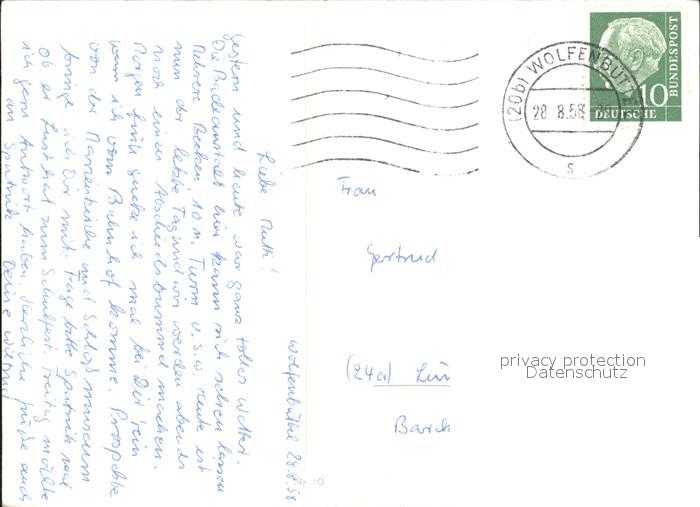 Wolfenbüttel 28.8.58
Liebe Mutti!
gestern und heute war ganz tolles Wetter.
Die Badeanstalt hier kann sich sehen lassen
Mehrere Becken 10 m. Turm u.s.w. Heute ist
nun der letzte Tag und wir werden abends
noch einen Abschiedsbummel machen.
Morgen früh gucke ich mal bei Dir rein
wenn ich vom Bahnhof komme. Prospekte
von der Marienkirche und Schloßmuseum
bringe ich Dir mit. Frage bitte Sputnik mal
ob er Lust hat zum Schulfest. Freitag möchte
ich gern Antwort haben. Herzliche Grüße auch
an Sputnik Deine
(20b) WOLFENBÜTTEL
28 8.58
s
10
DEUTSCHE
BUNDESPOST
Frau
Gertrud
(24a) Lün
Barck
privacy protection
Datenschutz
Nr 10